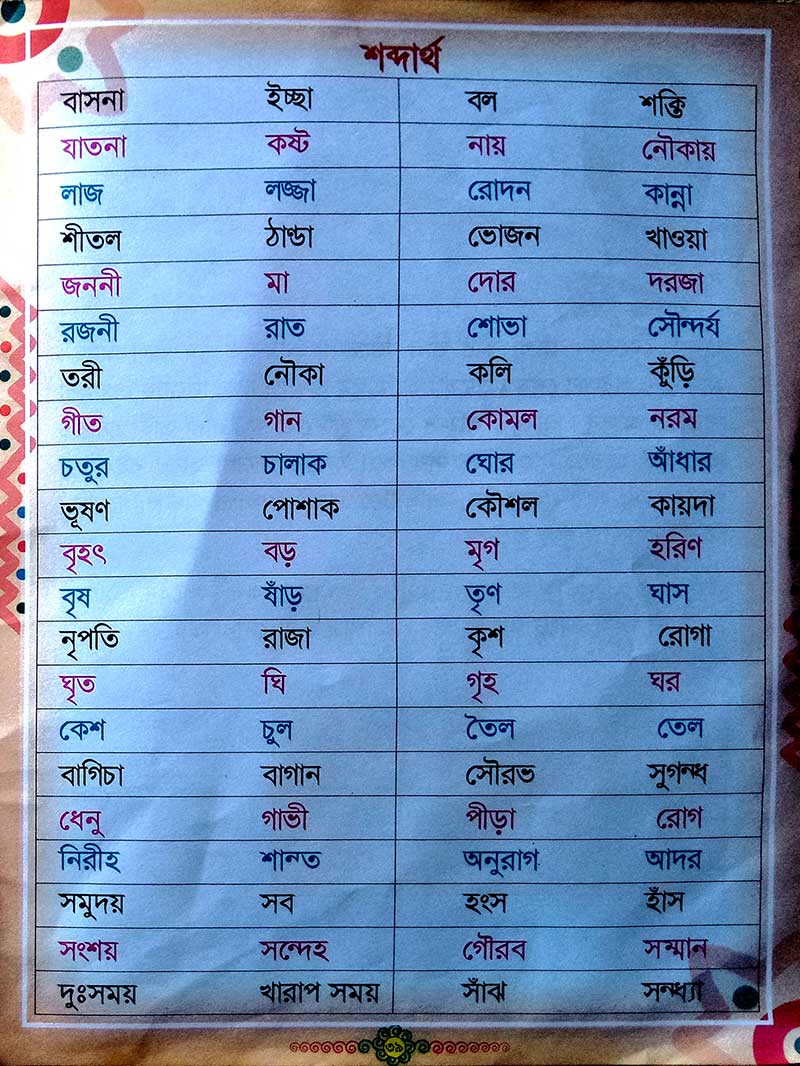 শব্দার্থ
বাসনা ইচ্ছা বল শক্তি
যাতনা কষ্ট নায় নৌকায়
লাজ লজ্জা রোদন কান্না
শীতল ঠাণ্ডা ভোজন খাওয়া
জননী মা দোর দরজা
রজনী রাত শোভা সৌন্দর্য
তরী নৌকা কলি কুঁড়ি
গীত গান কোমল নরম
চতুর চালাক ঘোর আঁধার
ভূষণ পোশাক কৌশল কায়দা
বৃহৎ বড় মৃগ হরিণ
বৃষ ষাঁড় তৃণ ঘাস
নৃপতি রাজা কৃশ রোগা
ঘৃত ঘি গৃহ ঘর
কেশ চুল তৈল তেল
বাগিচা বাগান সৌরভ সুগন্ধ
ধেনু গাভী পীড়া রোগ
নিরীহ শান্ত অনুরাগ আদর
সমুদয় সব হংস হাঁস
সংশয় সন্দেহ গৌরব সম্মান
দুঃসময় খারাপ সময় সাঁঝ সন্ধ্যা
৩৯